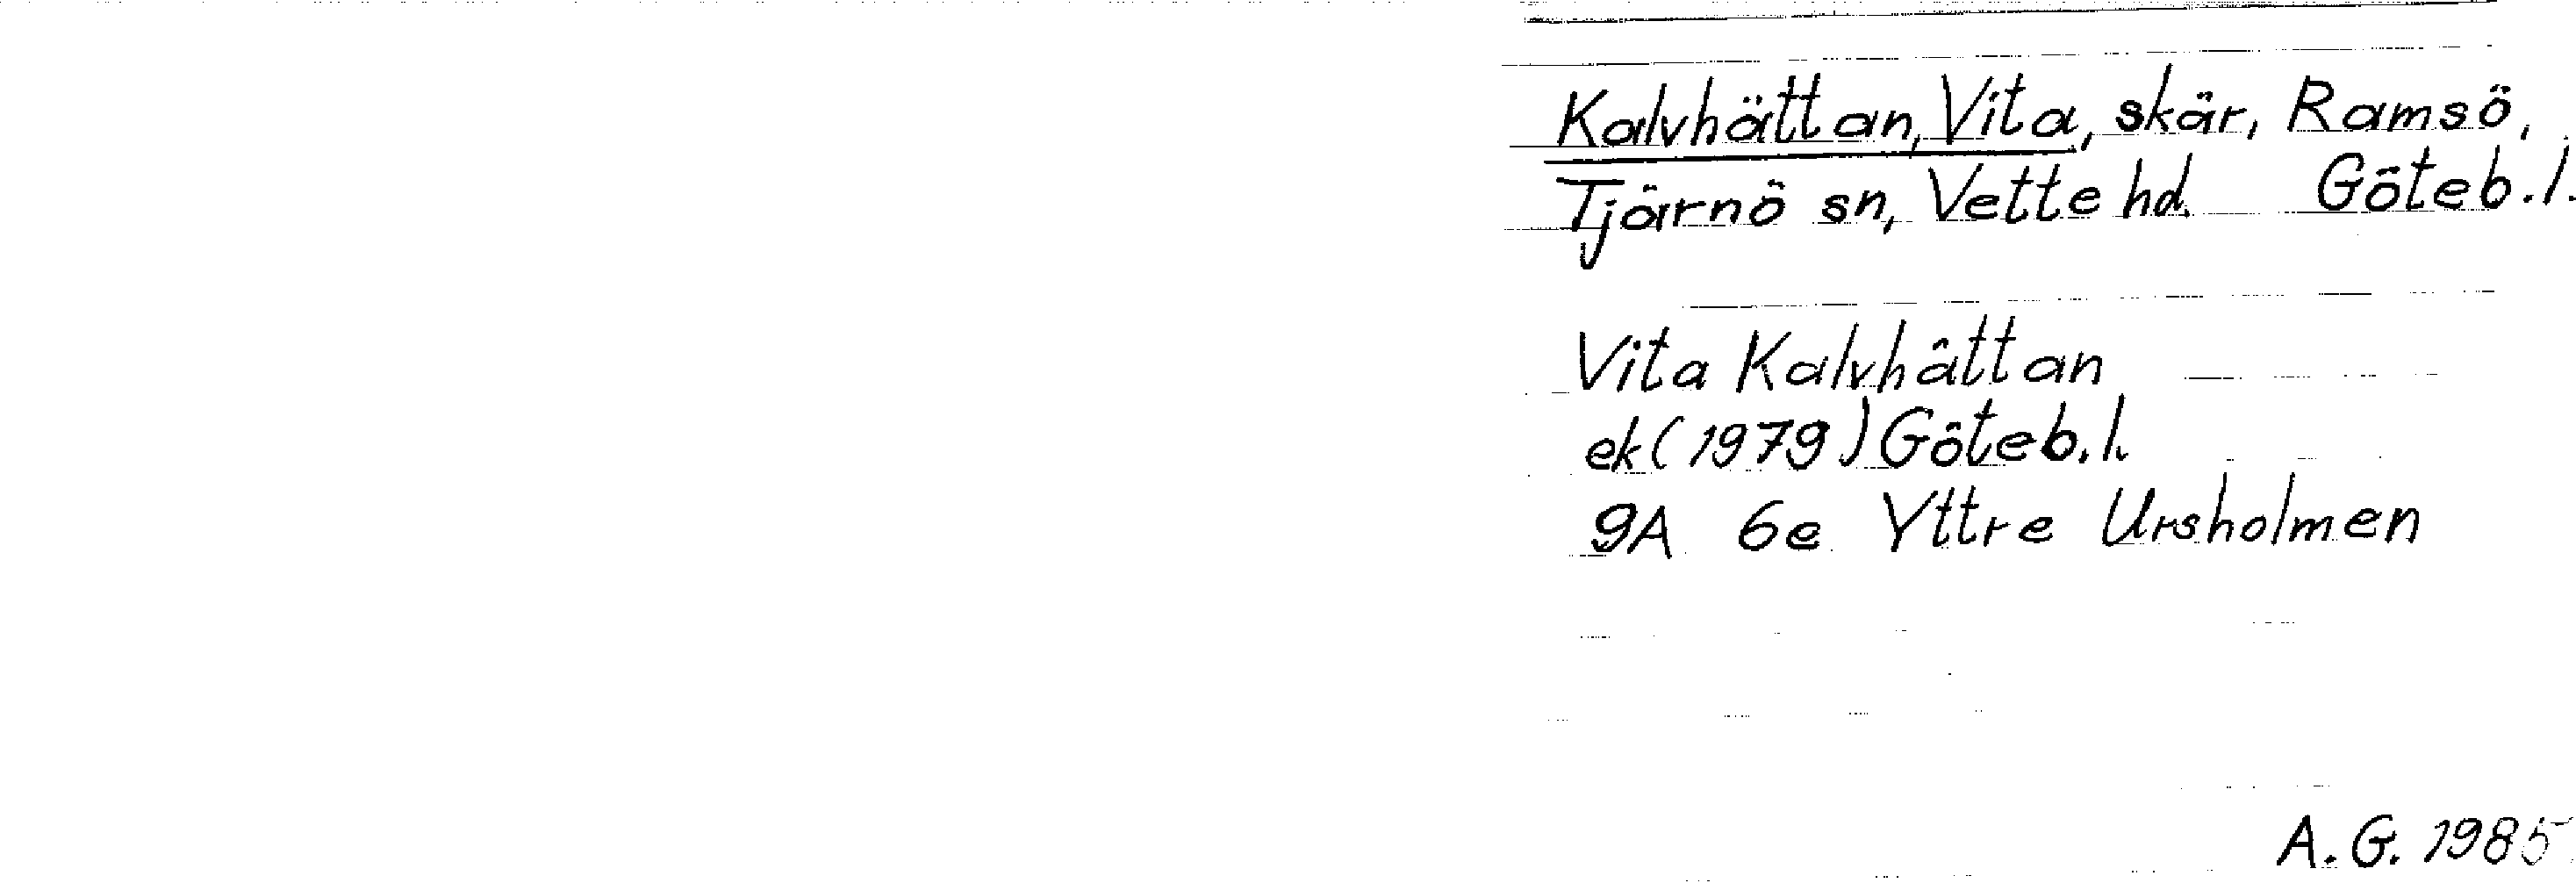 Kalvhättan, Vita, skär, Ramsö,
Tjärnö sn, Vette hd. Göteb.l.
Vita Kalvhättan
ek (1979) Göteb.l.
9A 6e Yttre Ursholmen
A.G. 1985